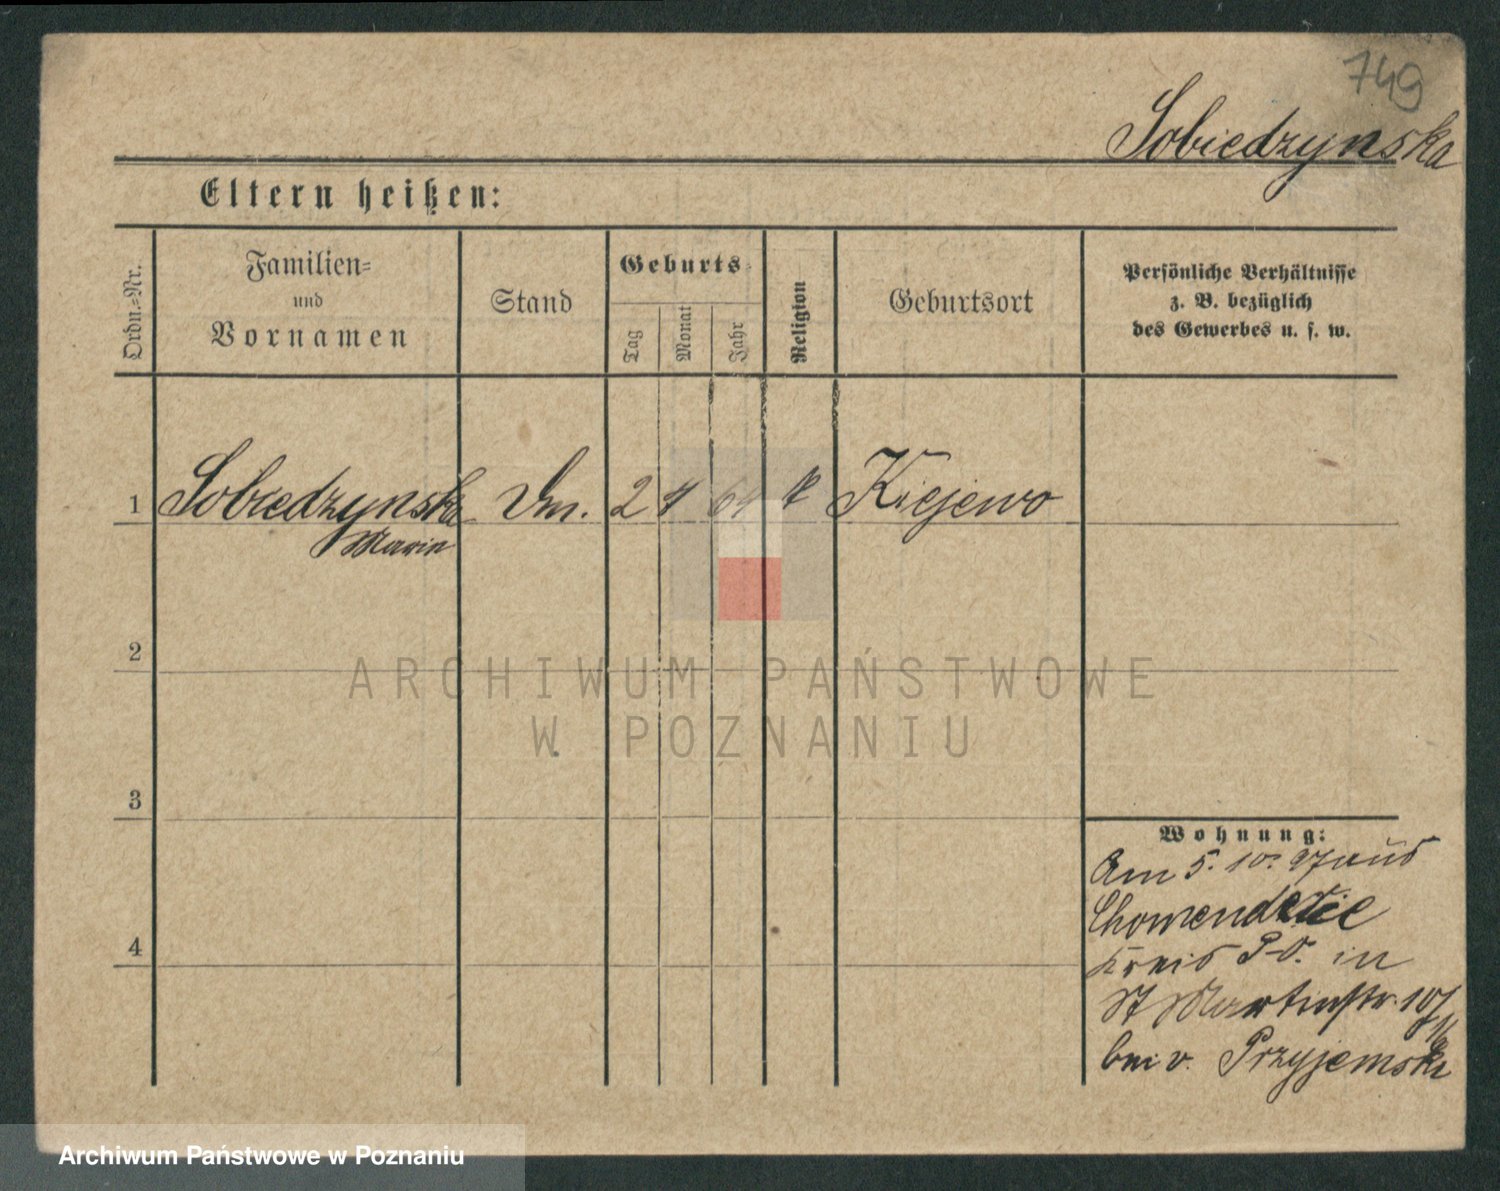 749
Sobiedzynska
Eltern heißen:
Ordn.-Nr.
Familien-
und
Vornamen
Stand
Geburts
Tag
Monat
Jahr
Religion
Geburtsort
Persönliche Verhältnisse
z. B. bezüglich
des Gewerbes u. s. w.
1 Sobiedzynska 2 4 64 k Kiejewo
Marie
2
3
4
Wohnung:
Am 5. 10. 97 aus
Kreis P-O. in
St Martinstr. 10/
bei v. Przyjemski
ARCHIWUM PAŃSTWOWE
W POZNANIU
Archiwum Państwowe w Poznaniu